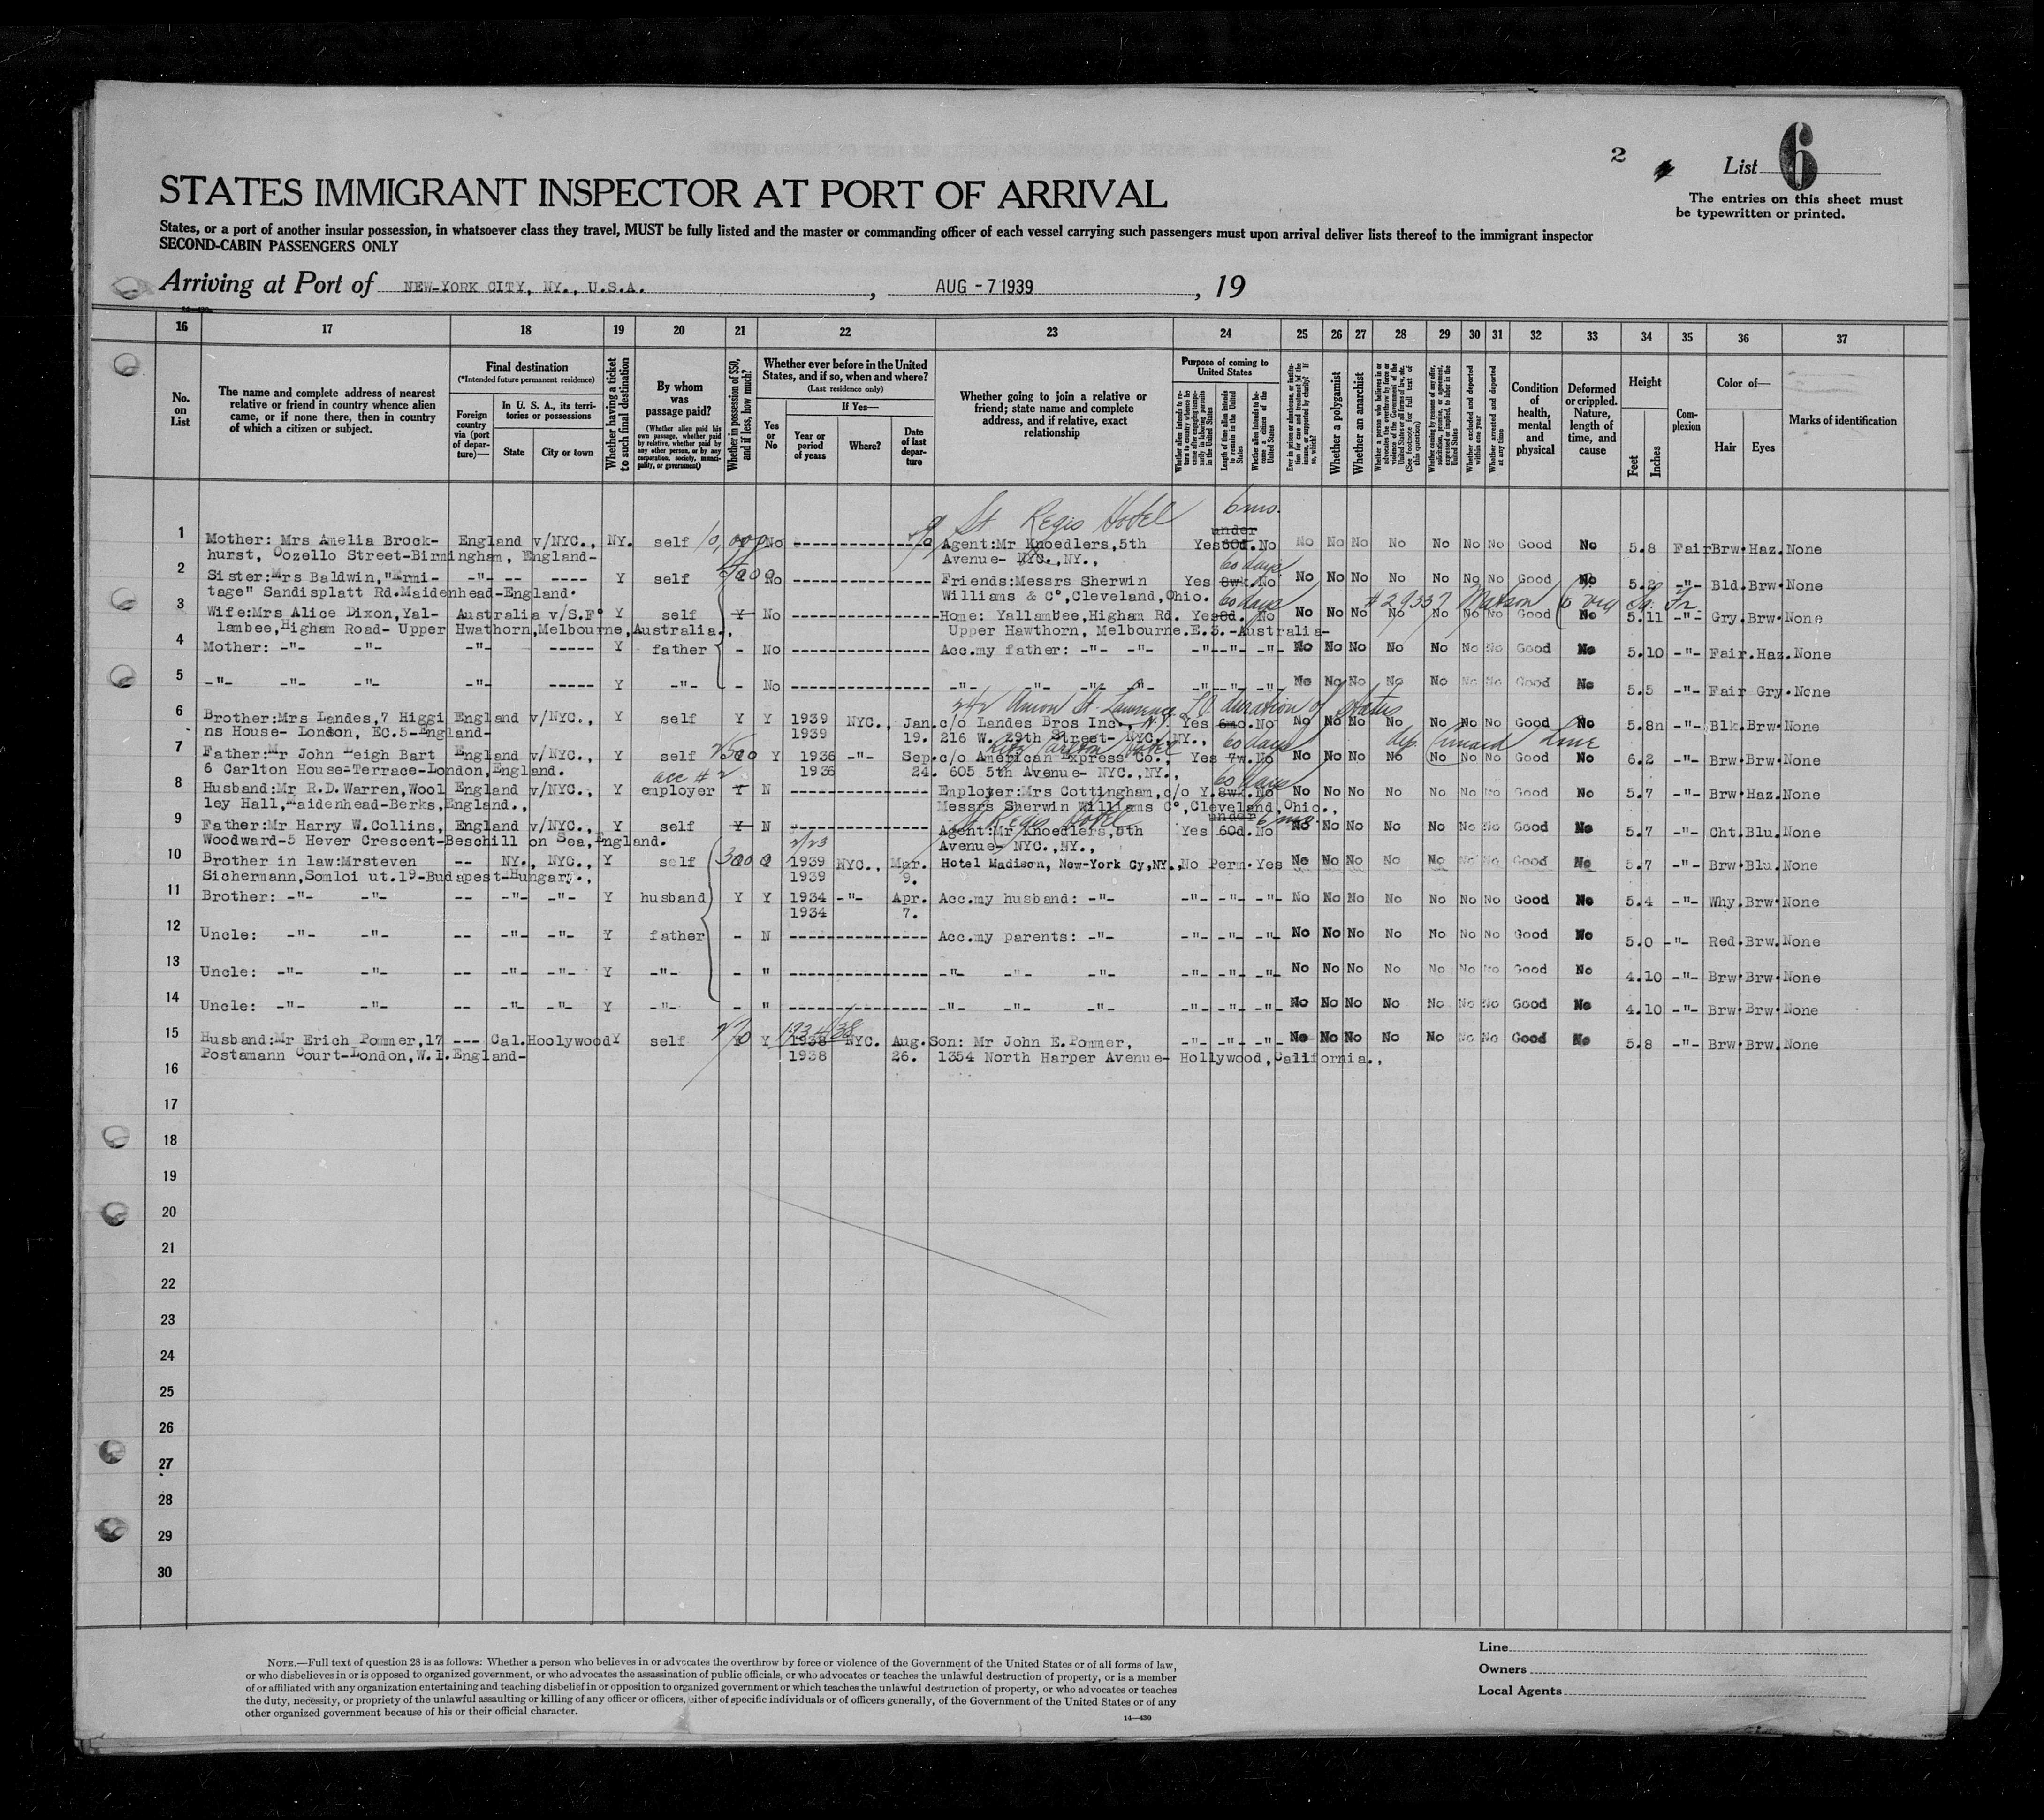 2
List 6
The entries on this sheet must
be typewritten or printed.
STATES IMMIGRANT INSPECTOR AT PORT OF ARRIVAL
States, or a port of another insular possession, in whatsoever class they travel, MUST be fully listed and the master or commanding officer of each vessel carrying such passengers must upon arrival deliver lists thereof to the immigrant inspector
SECOND-CABIN PASSENGERS ONLY
Arriving at Port of NEW-YORK CITY, NY., U.S.A. , AUG - 7 1939 , 19
16 17 18 19 20 21 22 23 24 25 26 27 28 29 30 31 32 33 34 35 36 37
No. on List
The name and complete address of nearest relative or friend in country whence alien came, or if none there, then in country of which a citizen or subject.
Final destination
(*Intended future permanent residence)
Foreign country via (port of departure)—
In U. S. A., its territories or possessions
State
City or town
Whether having a ticket to such final destination
By whom was passage paid?
(Whether alien paid his own passage, whether paid by relative, whether paid by any other person, or by any corporation, society, municipality, or government)
Whether in possession of $50, and if less, how much?
Whether ever before in the United States, and if so, when and where?
(Last residence only)
Yes or No
If Yes—
Year or period of years
Where?
Date of last departure
Whether going to join a relative or friend; state name and complete address, and if relative, exact relationship
Purpose of coming to United States
Whether alien intends to return to country whence he came after engaging temporarily in laboring pursuits in the United States
Length of time alien intends to remain in the United States
Whether alien intends to become a citizen of the United States
Ever in prison or almshouse, or institution for care and treatment of the insane, or supported by charity? If so, which?
Whether a polygamist
Whether an anarchist
Whether a person who believes in or advocates the overthrow by force or violence of the Government of the United States or all forms of law, etc. (See footnote for full text of this question)
Whether coming by reason of any offer, solicitation, promise, or agreement, expressed or implied, to labor in the United States
Whether excluded and deported within one year
Whether arrested and deported at any time
Condition of health, mental and physical
Deformed or crippled. Nature, length of time, and cause
Height
Feet
Inches
Complexion
Color of—
Hair
Eyes
Marks of identification
St Regis Hotel 6 mo.
1 Mother: Mrs Amelia Brock- England v/NYC., NY. self 10,000 No Agent:Mr Knoedlers,5th Yes under 60d. No No No No No No No No Good No 5.8 Fair Brw. Haz. None
hurst, Oozello Street-Birmingham, England- Avenue- NYC.,NY.,
60 days
2 Sister:Mrs Baldwin,"Ermi- -"- -- ---- Y self No Friends:Messrs Sherwin Yes 8wk. No No No No No No No No Good No 5.2 -"- Bld. Brw. None
tage" Sandisplatt Rd.Maidenhead-England. Williams & C°,Cleveland,Ohio.
60 days #29337 Matson
3 Wife:Mrs Alice Dixon,Yal- Australia v/S.F° Y self Y No Home: Yallambee,Higham Rd. Yes 8d. No No No No No No No No Good No 5.11 -"- Gry. Brw. None
lambee,Higham Road- Upper Hwathorn,Melbourne,Australia., Upper Hawthorn, Melbourne.E.3.-Australia-
4 Mother: -"- -"- -"- ----- Y father - No Acc.my father: -"- -"- -"- -"- -"- No No No No No No No Good No 5.10 -"- Fair. Haz. None
5 -"- -"- -"- -"- ----- Y -"- - No -"- -"- -"- -"- -"- -"- -"- No No No No No No No Good No 5.5 -"- Fair Gry. None
242 Union St Lawrence duration of status
6 Brother:Mrs Landes,7 Higgi England v/NYC., Y self Y Y 1939 NYC., Jan. c/o Landes Bros Inc., N.Y. Yes 6mo. No No No No No No No No Good No 5.8n -"- Blk. Brw. None
ns House- London, EC.5-England- 1939 19. 216 W. 29th Street- NYC.,NY.,
Ritz Carlton Hotel 60 days dep. Cunard Line
7 Father:Mr John Leigh Bart England v/NYC., Y self 2500 Y 1936 -"- Sep. c/o American Express Co., Yes 7w. No No No No No No No No Good No 6.2 -"- Brw. Brw. None
6 Carlton House-Terrace-London,England. 1936 24. 605 5th Avenue- NYC.,NY.,
acc # 2 60 days
8 Husband:Mr R.D.Warren,Wool England v/NYC., Y employer Y N Employer:Mrs Cottingham,c/o Y. 8wk. No No No No No No No No Good No 5.7 -"- Brw. Haz. None
ley Hall,Maidenhead-Berks,England., Messrs Sherwin Williams C°,Cleveland,Ohio.,
St Regis Hotel under 6 mo.
9 Father:Mr Harry W.Collins, England v/NYC., Y self Y N Agent:Mr Knoedlers,5th Yes 60d. No No No No No No No No Good No 5.7 -"- Cht. Blu. None
Woodward-5 Hever Crescent-Beschill on Sea,England. Avenue- NYC.,NY.,
2/23
10 Brother in law:Mrsteven -- NY., NYC., Y self 3000 1939 NYC., Mar. Hotel Madison, New-York Cy,NY., No Perm. Yes No No No No No No No Good No 5.7 -"- Brw. Blu. None
Sichermann,Somloi ut.19-Budapest-Hungary., 1939 9.
11 Brother: -"- -"- -- -"- -"- Y husband Y Y 1934 -"- Apr. Acc.my husband: -"- -"- -"- -"- No No No No No No No Good No 5.4 -"- Why. Brw. None
1934 7.
12 Uncle: -"- -"- -- -"- -"- Y father - N Acc.my parents: -"- -"- -"- -"- No No No No No No No Good No 5.0 -"- Red. Brw. None
13 Uncle: -"- -"- -- -"- -"- Y -"- - " -"- -"- -"- -"- -"- -"- No No No No No No No Good No 4.10 -"- Brw. Brw. None
14 Uncle: -"- -"- -- -"- -"- Y -"- - " -"- -"- -"- -"- -"- -"- No No No No No No No Good No 4.10 -"- Brw. Brw. None
1934/38
15 Husband:Mr Erich Pommer,17 --- Cal. Hoolywood Y self Y 1938 NYC. Aug. Son: Mr John E.Pommer, -"- -"- -"- No No No No No No No Good No 5.8 -"- Brw. Brw. None
Postamann Court-London,W.1.England- 1938 26. 1354 North Harper Avenue- Hollywood,California.,
16
17
18
19
20
21
22
23
24
25
26
27
28
29
30
NOTE.—Full text of question 28 is as follows: Whether a person who believes in or advocates the overthrow by force or violence of the Government of the United States or of all forms of law,
or who disbelieves in or is opposed to organized government, or who advocates the assassination of public officials, or who advocates or teaches the unlawful destruction of property, or is a member
of or affiliated with any organization entertaining and teaching disbelief in or opposition to organized government or which teaches the unlawful destruction of property, or who advocates or teaches
the duty, necessity, or propriety of the unlawful assaulting or killing of any officer or officers, either of specific individuals or of officers generally, of the Government of the United States or of any
other organized government because of his or their official character.
14—430
Line
Owners
Local Agents